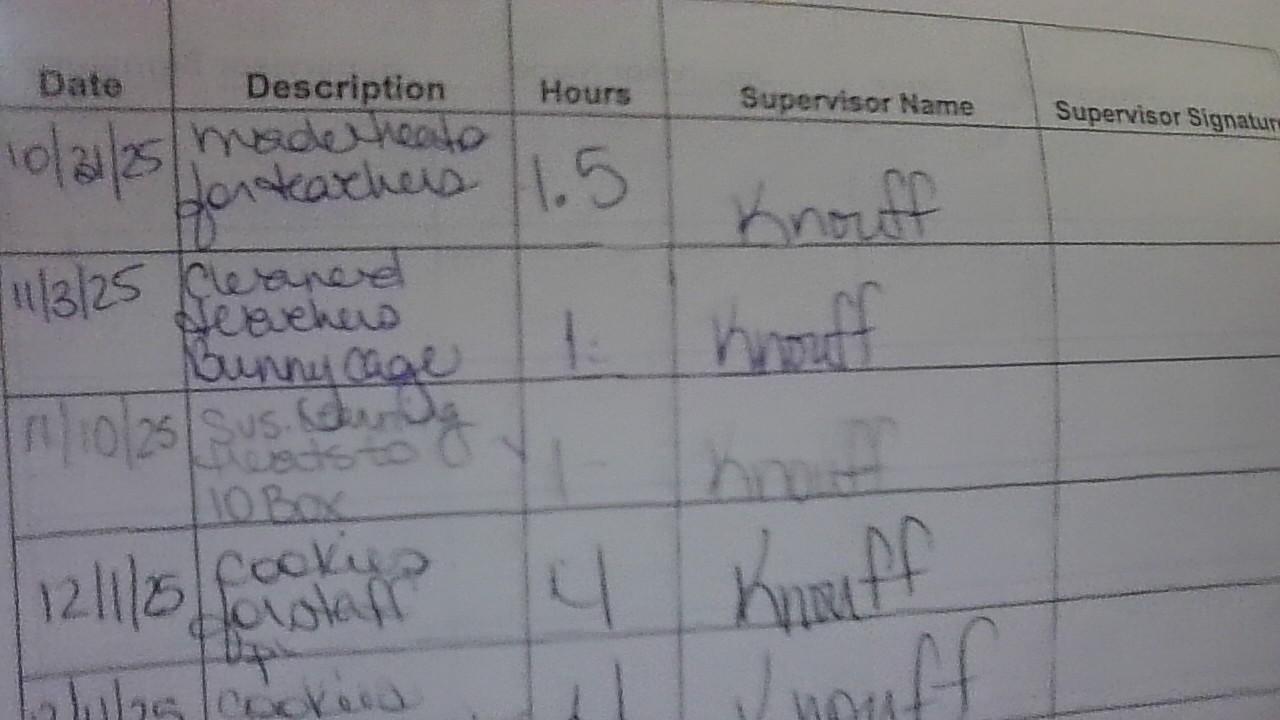 Date Description Hours Supervisor Name Supervisor Signature
10/31/25 made heats
for teachers 1.5 Knouff
11/3/25 Cleaned
teachers
Bunny cage 1 Knouff
11/10/25 Sus.
treats to 1 Knouff
10 Box
12/1/25 Cookies
for staff 4 Knouff
cookies Knouff